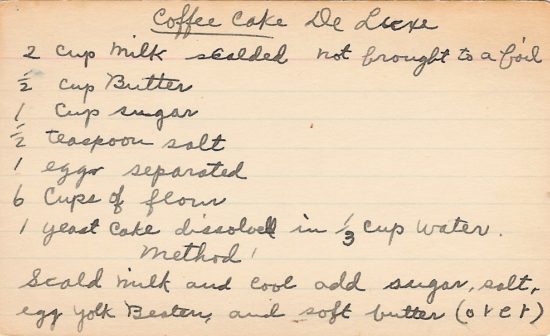 Coffee Cake De Luxe
2 cup milk scalded not brought to a boil
½ cup Butter
1 cup sugar
½ teaspoon salt
1 eggs separated
6 cups of flour
1 yeast cake dissolved in ⅓ cup water.
Method!
Scald milk and cool add sugar, salt,
egg yolk Beaten, and soft butter (over)